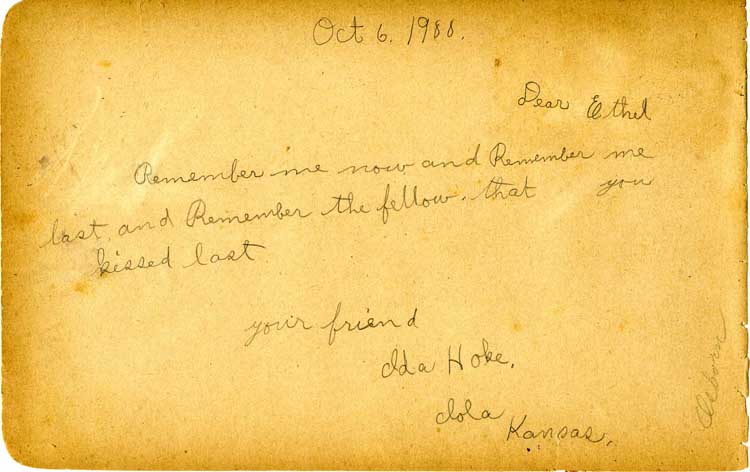 Oct 6. 1900.
Dear Ethel
Remember me now and Remember me
last, and Remember the fellow. that you
kissed last
your friend
Ida Hoke,
Iola
Kansas.
Osborn